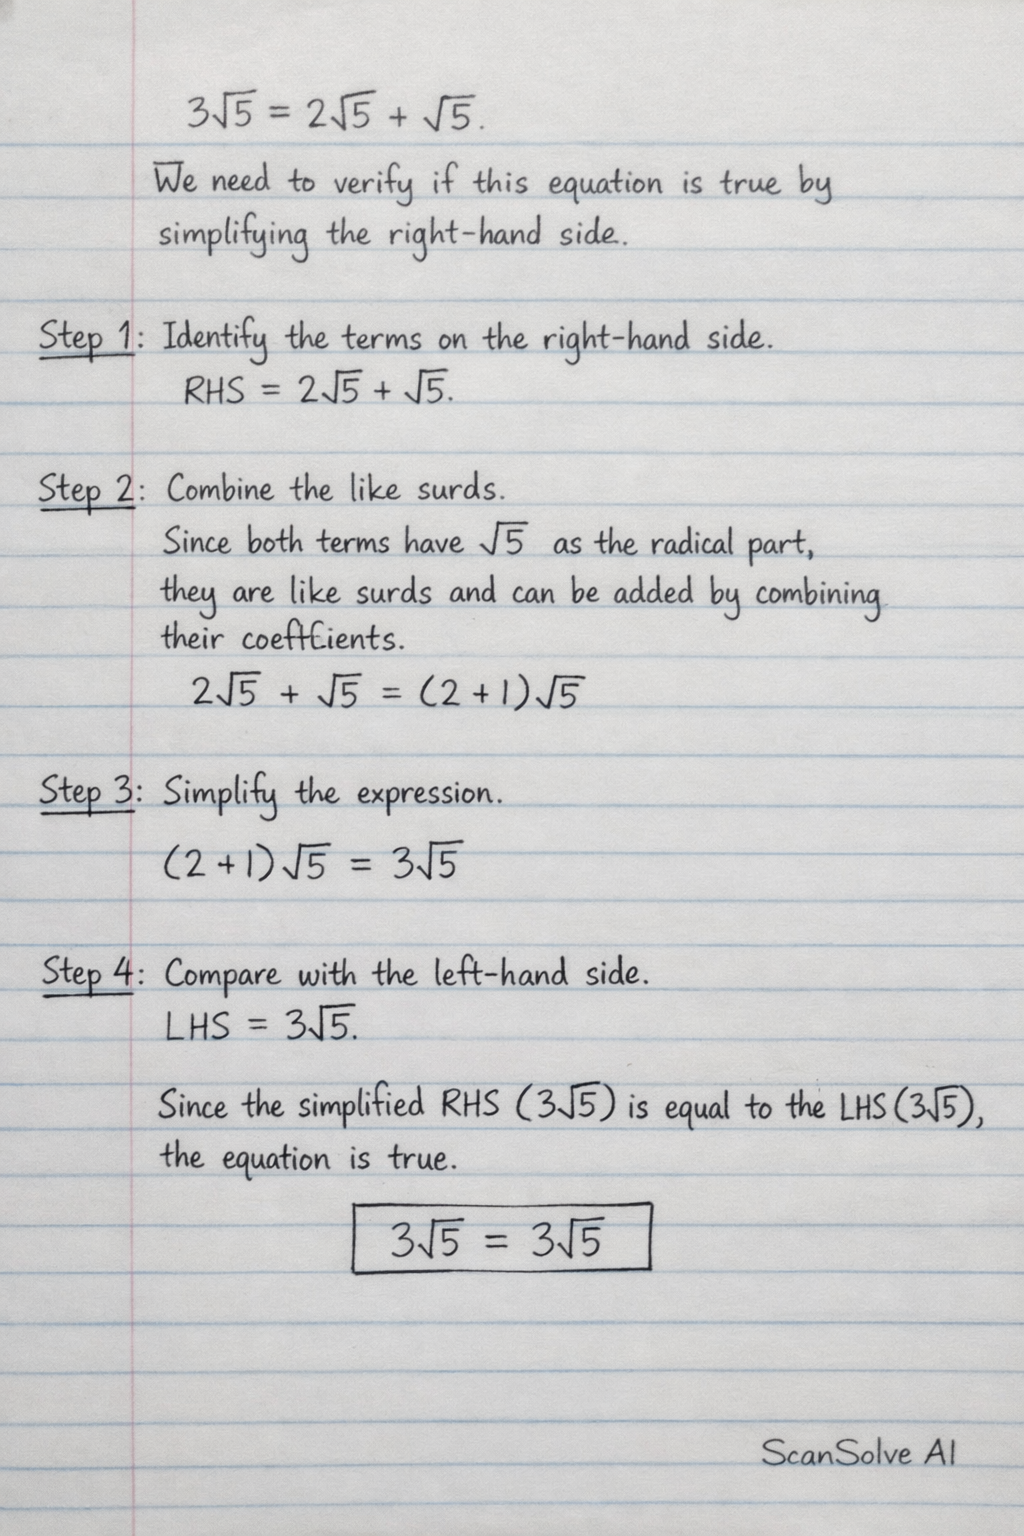 3√5 = 2√5 + √5.
We need to verify if this equation is true by
simplifying the right-hand side.
Step 1: Identify the terms on the right-hand side.
RHS = 2√5 + √5.
Step 2: Combine the like surds.
Since both terms have √5 as the radical part,
they are like surds and can be added by combining
their coefficients.
2√5 + √5 = (2 + 1)√5
Step 3: Simplify the expression.
(2 + 1)√5 = 3√5
Step 4: Compare with the left-hand side.
LHS = 3√5.
Since the simplified RHS (3√5) is equal to the LHS (3√5),
the equation is true.
3√5 = 3√5
ScanSolve AI